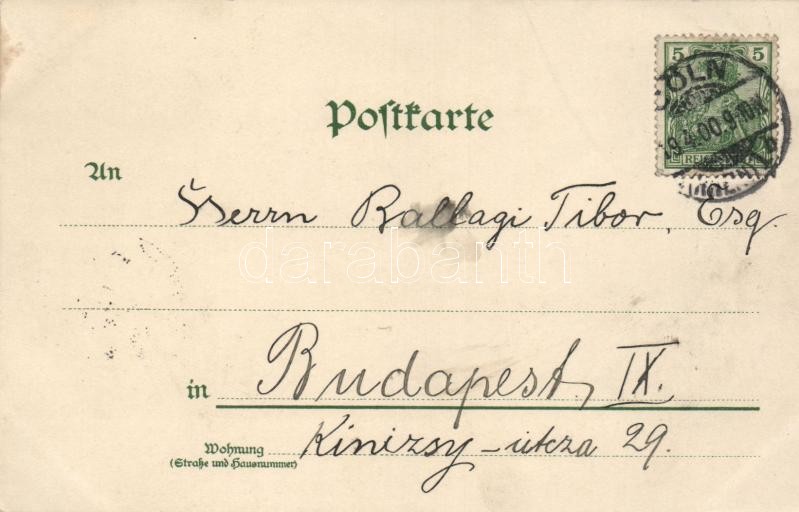 5 5
CÖLN
9.4.00.9-10V.
REICHSPOST
Postkarte
An
Herrn Ballagi Tibor, Esq.
darabanth
in Budapest, IX.
Wohnung
(Straße und Hausnummer)
Kinizsy-utcza 29.